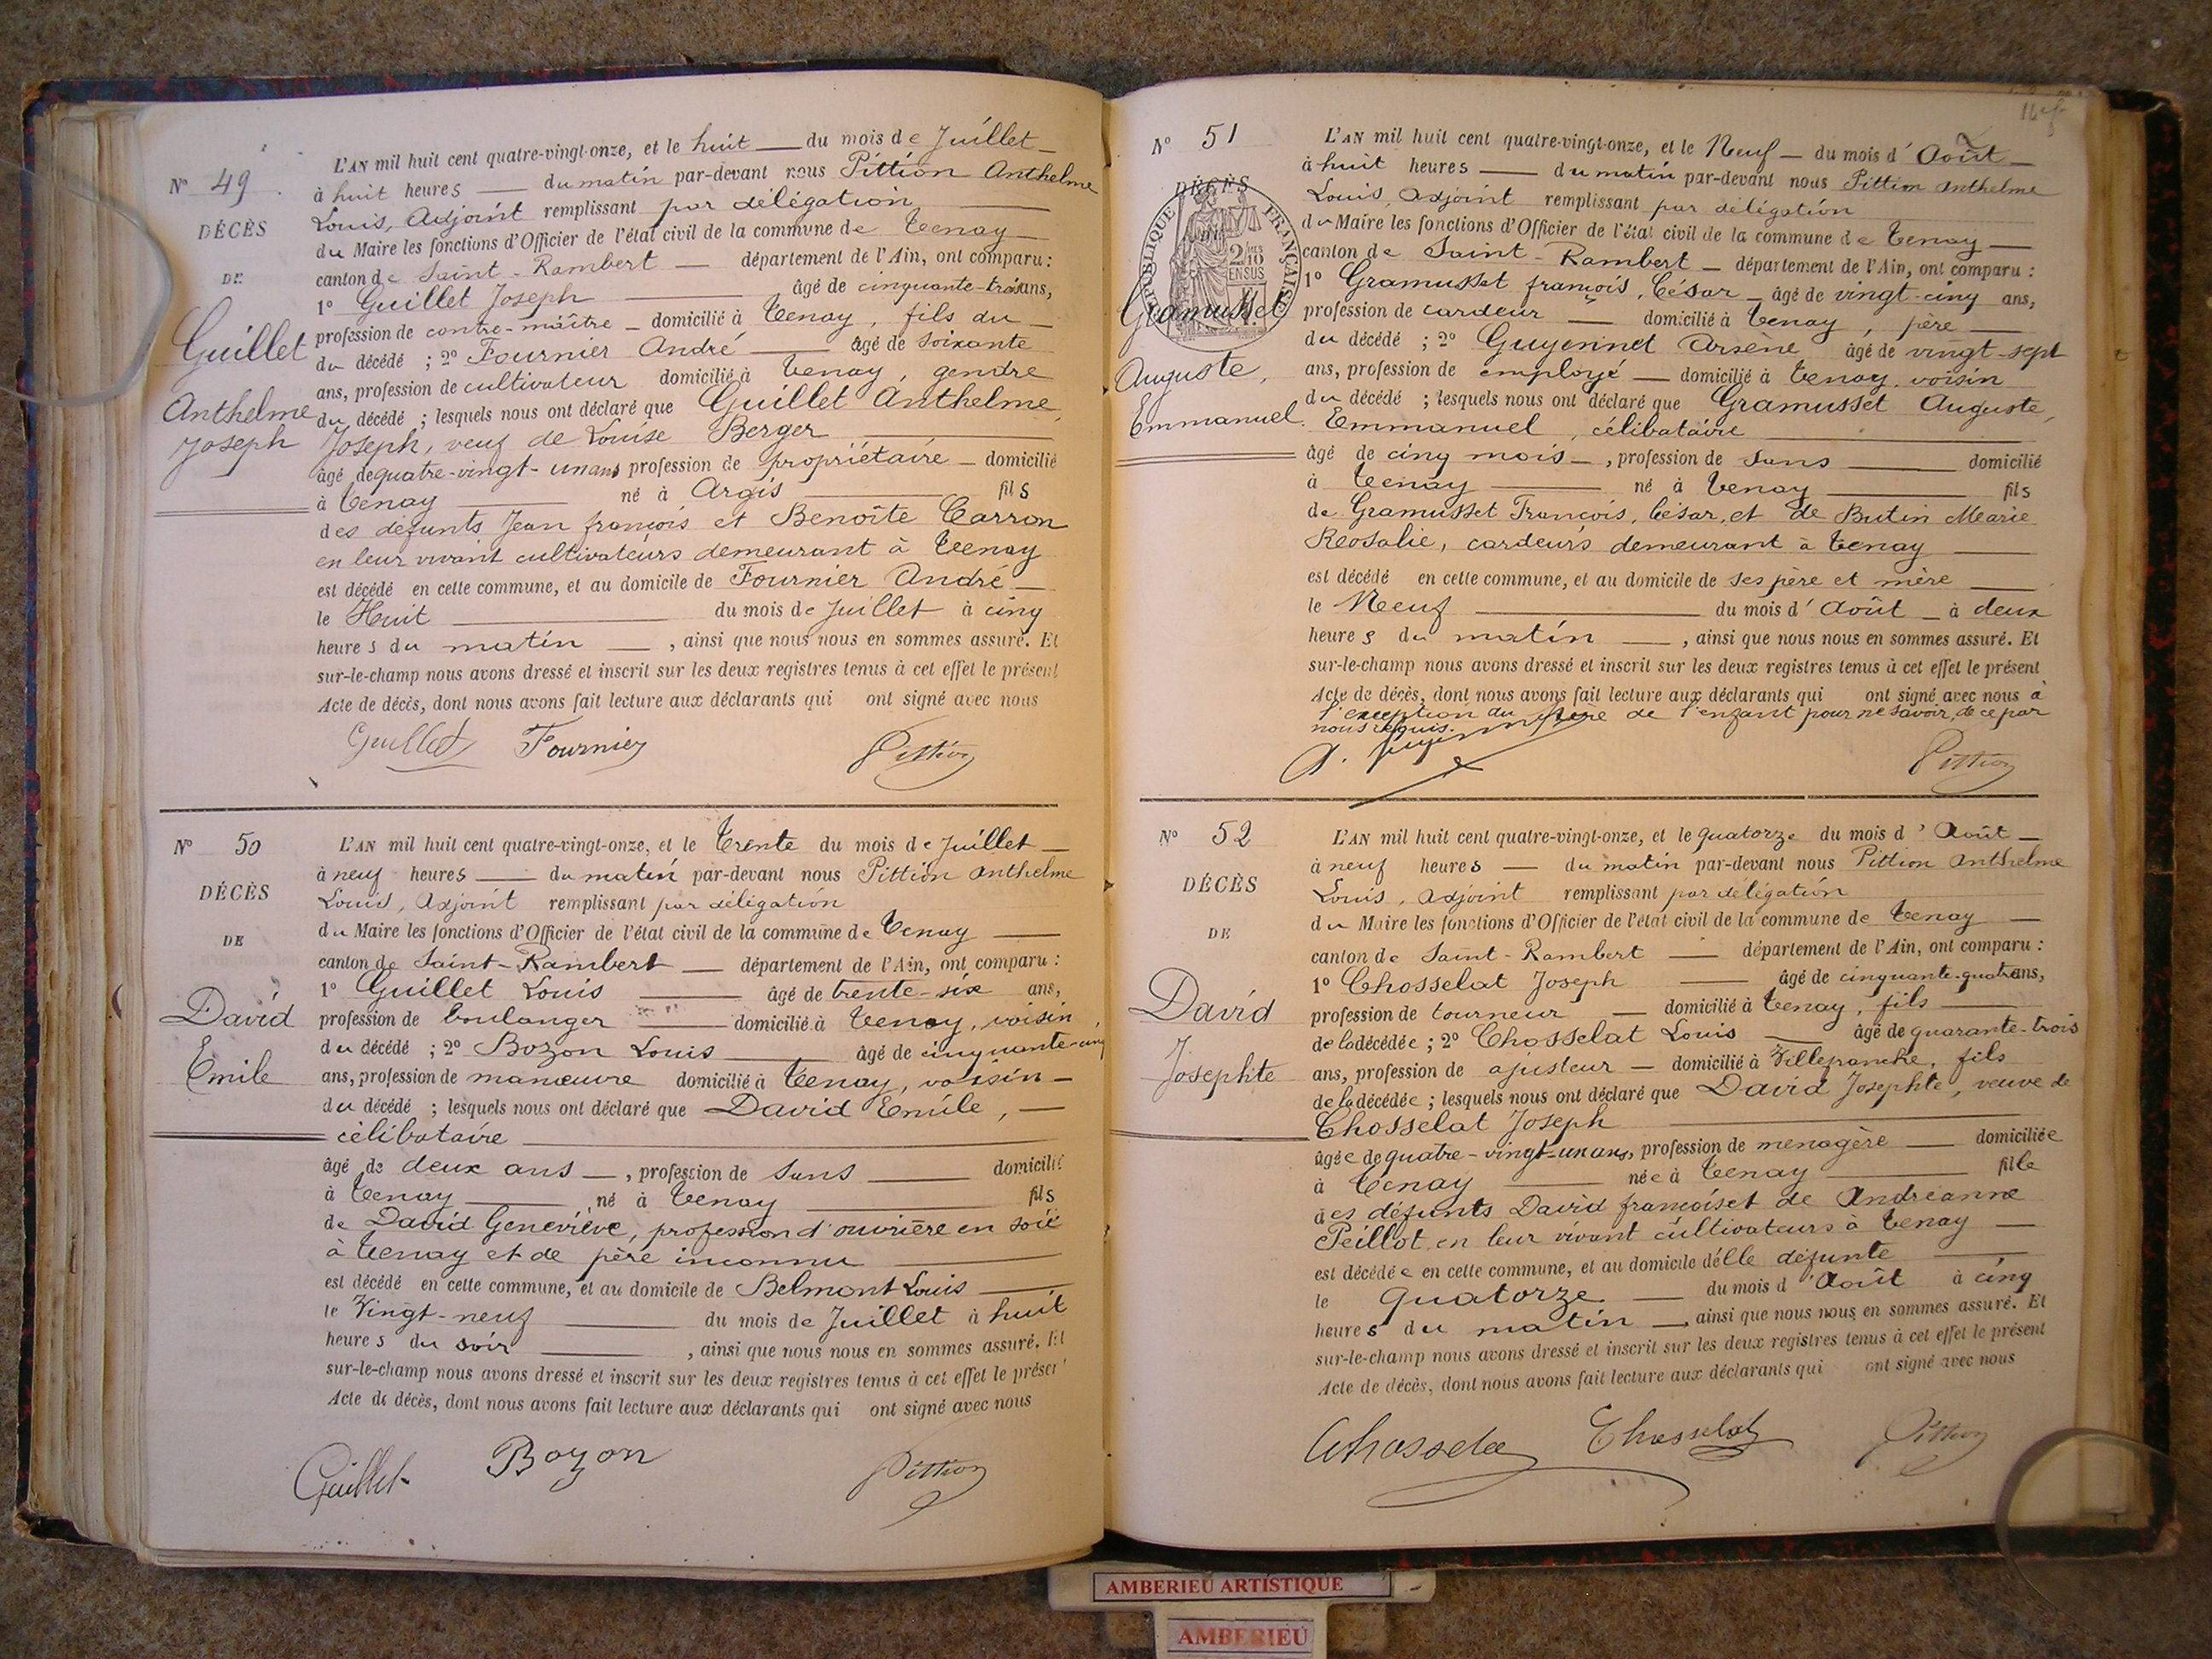 N° 49
DÉCÈS
DE
Guillet
Anthelme
Joseph
L'AN mil huit cent quatre-vingt-onze, et le huit du mois de Juillet
à huit heures du matin par-devant nous Pittion Anthelme
Louis, Adjoint remplissant par délégation
du Maire les fonctions d'Officier de l'état civil de la commune de Tenay
canton de Saint-Rambert département de l'Ain, ont comparu :
1° Guillet Joseph âgé de cinquante-trois ans,
profession de contre-maître domicilié à Tenay, fils du
du décédé ; 2° Fournier André âgé de soixante
ans, profession de cultivateur domicilié à Tenay, gendre
du décédé ; lesquels nous ont déclaré que Guillet Anthelme
Joseph, veuf de Louise Berger
âgé de quatre-vingt-un ans profession de propriétaire domicilié
à Tenay né à Argis fils
des défunts Jean françois et Benoîte Carron
en leur vivant cultivateurs demeurant à Tenay
est décédé en cette commune, et au domicile de Fournier André
le Huit du mois de Juillet à cinq
heures du matin, ainsi que nous nous en sommes assuré. Et
sur-le-champ nous avons dressé et inscrit sur les deux registres tenus à cet effet le présent
Acte de décès, dont nous avons fait lecture aux déclarants qui ont signé avec nous
Guillet Fournier Pittion
N° 50
DÉCÈS
DE
David
Emile
L'AN mil huit cent quatre-vingt-onze, et le Trente du mois de Juillet
à neuf heures du matin par-devant nous Pittion Anthelme
Louis, Adjoint remplissant par délégation
du Maire les fonctions d'Officier de l'état civil de la commune de Tenay
canton de Saint-Rambert département de l'Ain, ont comparu :
1° Guillet Louis âgé de trente-six ans,
profession de boulanger domicilié à Tenay, voisin
du décédé ; 2° Bozon Louis âgé de cinquante-cinq
ans, profession de manœuvre domicilié à Tenay, voisin
du décédé ; lesquels nous ont déclaré que David Émile,
célibataire
âgé de deux ans, profession de sans domicilié
à Tenay né à Tenay fils
de David Geneviève, profession d'ouvrière en soie
à Tenay et de père inconnu
est décédé en cette commune, et au domicile de Belmont Louis
le Vingt-neuf du mois de Juillet à huit
heures du soir, ainsi que nous nous en sommes assuré. Et
sur-le-champ nous avons dressé et inscrit sur les deux registres tenus à cet effet le présent
Acte de décès, dont nous avons fait lecture aux déclarants qui ont signé avec nous
Guillet Bozon Pittion
N° 51
DÉCÈS
RÉPUBLIQUE FRANÇAISE
2/10 EN SUS
Gramusset
Auguste,
Emmanuel.
L'AN mil huit cent quatre-vingt-onze, et le Neuf du mois d'Août
à huit heures du matin par-devant nous Pittion Anthelme
Louis, Adjoint remplissant par délégation
du Maire les fonctions d'Officier de l'état civil de la commune de Tenay
canton de Saint-Rambert département de l'Ain, ont comparu :
1° Gramusset françois, César âgé de vingt-cinq ans,
profession de cardeur domicilié à Tenay, père
du décédé ; 2° Guyennet Arsène âgé de vingt-sept
ans, profession de employé domicilié à Tenay, voisin
du décédé ; lesquels nous ont déclaré que Gramusset Auguste,
Emmanuel, célibataire
âgé de cinq mois, profession de sans domicilié
à Tenay né à Tenay fils
de Gramusset François, César, et de Butin Marie
Rosalie, cardeurs demeurant à Tenay
est décédé en cette commune, et au domicile de ses père et mère
le Neuf du mois d'Août à deux
heures du matin, ainsi que nous nous en sommes assuré. Et
sur-le-champ nous avons dressé et inscrit sur les deux registres tenus à cet effet le présent
Acte de décès, dont nous avons fait lecture aux déclarants qui ont signé avec nous à
l'exception du père de l'enfant pour ne savoir, de ce par
nous requis.
Pittion
N° 52
DÉCÈS
DE
David
Josephte
L'AN mil huit cent quatre-vingt-onze, et le quatorze du mois d'Août
à neuf heures du matin par-devant nous Pittion Anthelme
Louis, Adjoint remplissant par délégation
du Maire les fonctions d'Officier de l'état civil de la commune de Tenay
canton de Saint-Rambert département de l'Ain, ont comparu :
1° Chosselat Joseph âgé de cinquante-quatre ans,
profession de tourneur domicilié à Tenay, fils
de la décédée ; 2° Chosselat Louis âgé de quarante-trois
ans, profession de ajusteur domicilié à Villefranche, fils
de la décédée ; lesquels nous ont déclaré que David Josephte, veuve de
Chosselat Joseph
âgée de quatre-vingt-un ans, profession de menagère domiciliée
à Tenay née à Tenay fille
des défunts David françois et de Andréanne
Peillot en leur vivant cultivateurs à Tenay
est décédée en cette commune, et au domicile d'elle défunte
le Quatorze du mois d'Août à cinq
heures du matin, ainsi que nous nous en sommes assuré. Et
sur-le-champ nous avons dressé et inscrit sur les deux registres tenus à cet effet le présent
Acte de décès, dont nous avons fait lecture aux déclarants qui ont signé avec nous
Chosselat Chosselat Pittion
AMBERIEU ARTISTIQUE
AMBERIEU